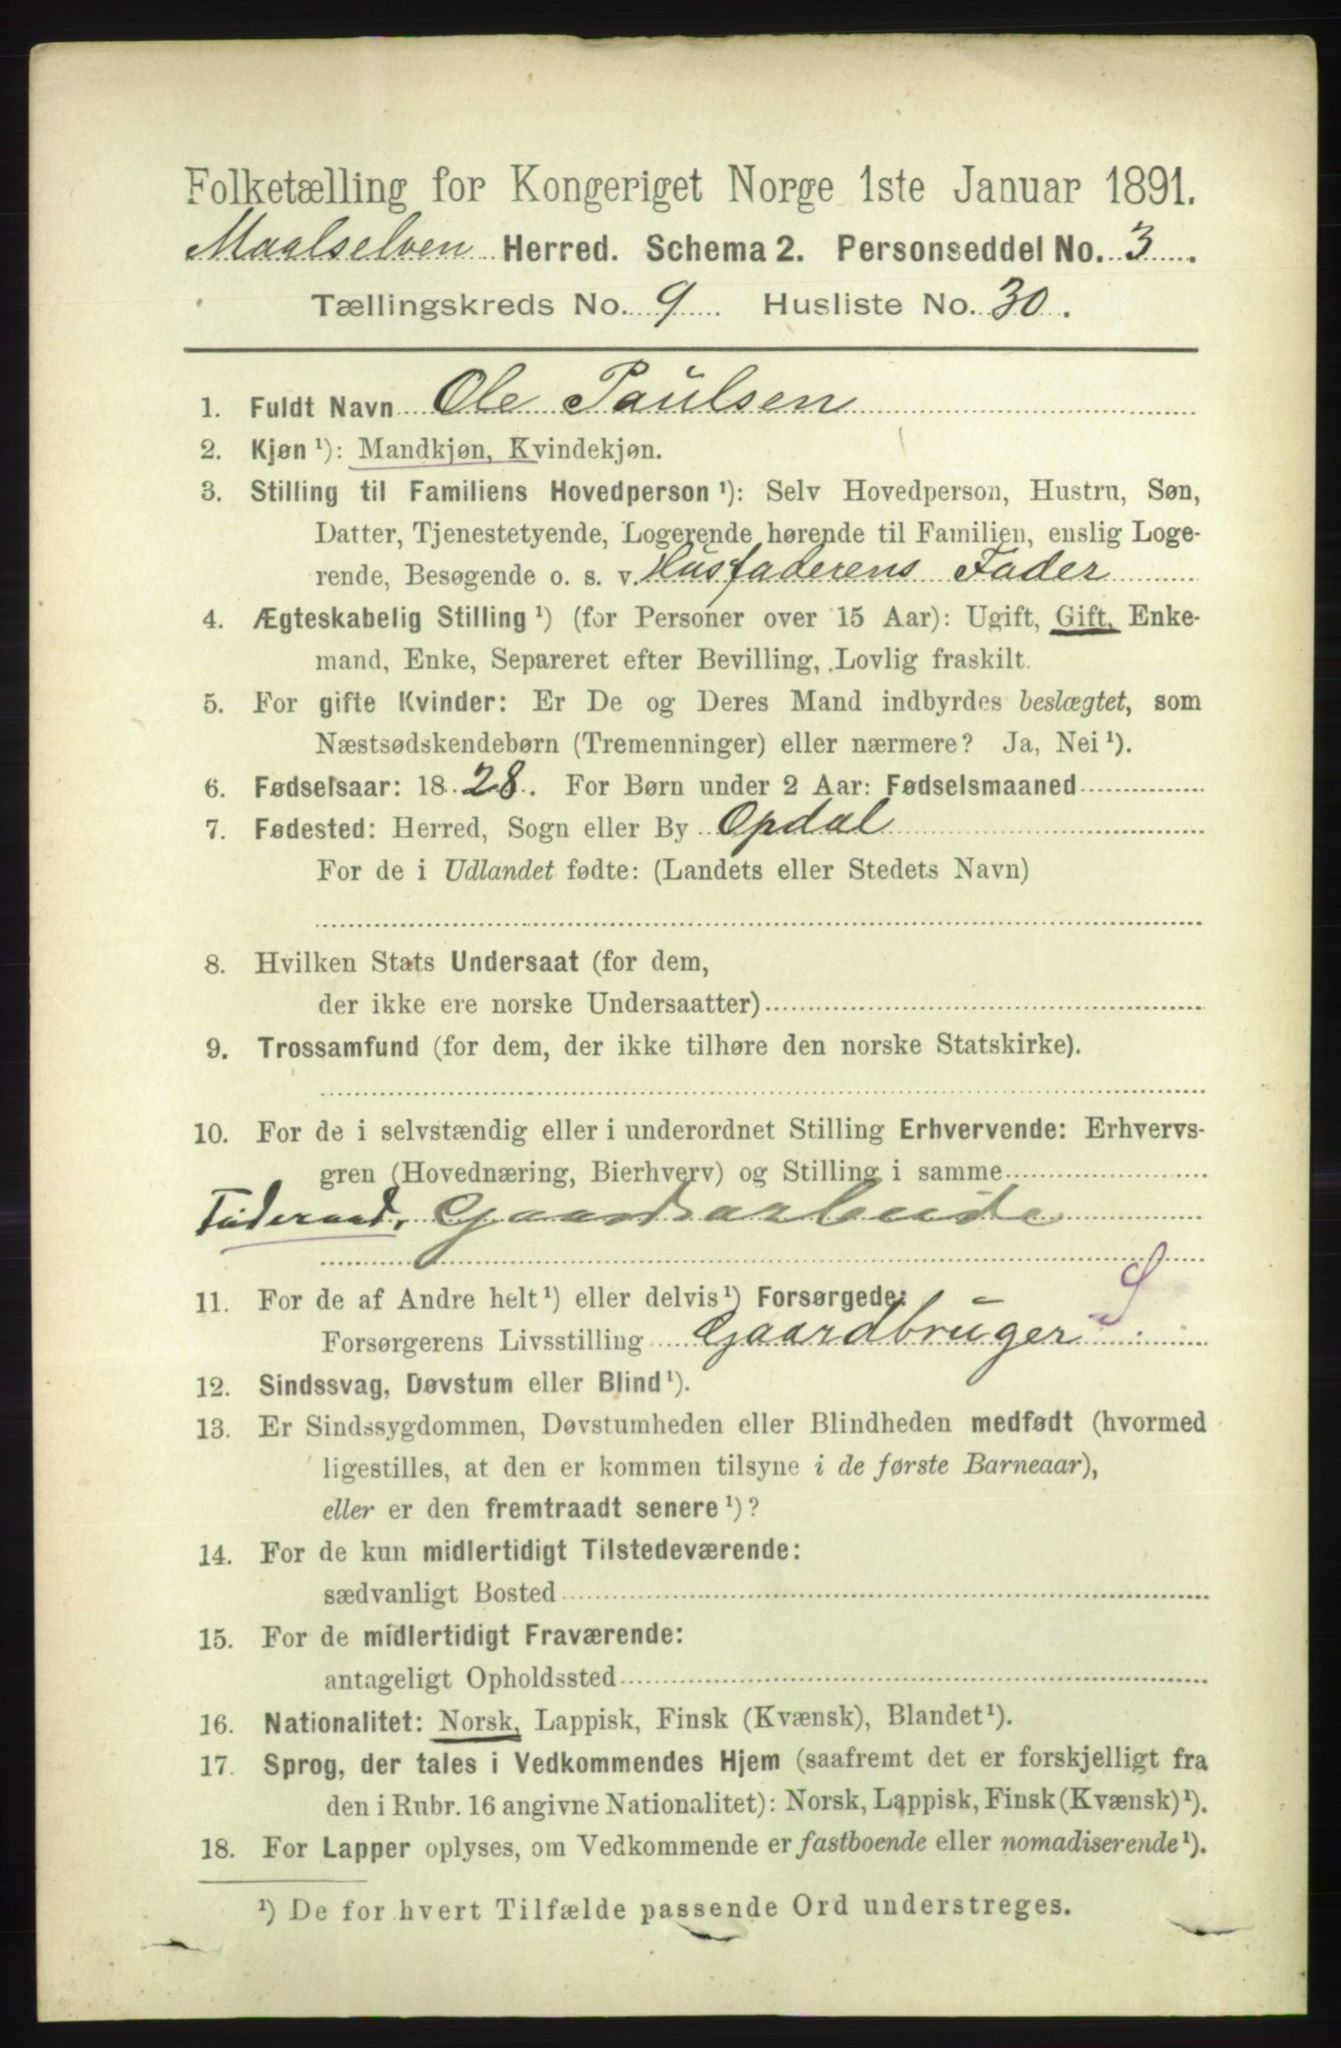 Folketælling for Kongeriget Norge 1ste Januar 1891.
Maalselven Herred. Schema 2. Personseddel No. 3.
Tællingskreds No. 9. Husliste No. 30.
1. Fuldt Navn Ole Paulsen
2. Kjøn ¹): Mandkjøn, Kvindekjøn.
3. Stilling til Familiens Hovedperson ¹): Selv Hovedperson, Hustru, Søn,
Datter, Tjenestetyende, Logerende hørende til Familien, enslig Loge-
rende, Besøgende o. s. v. Husfaderens Fader
4. Ægteskabelig Stilling ¹) (for Personer over 15 Aar): Ugift, Gift, Enke-
mand, Enke, Separeret efter Bevilling, Lovlig fraskilt.
5. For gifte Kvinder: Er De og Deres Mand indbyrdes beslægtet, som
Næstsødskendebørn (Tremenninger) eller nærmere? Ja, Nei ¹).
6. Fødselsaar: 1828. For Børn under 2 Aar: Fødselsmaaned
7. Fødested: Herred, Sogn eller By Opdal
For de i Udlandet fødte: (Landets eller Stedets Navn)
8. Hvilken Stats Undersaat (for dem,
der ikke ere norske Undersaatter)
9. Trossamfund (for dem, der ikke tilhøre den norske Statskirke).
10. For de i selvstændig eller i underordnet Stilling Erhvervende: Erhvervs-
gren (Hovednæring, Bierhverv) og Stilling i samme
Føderaad, Gaardsarbeide
11. For de af Andre helt ¹) eller delvis ¹) Forsørgede:
Forsørgerens Livsstilling Gaardbruger S
12. Sindssvag, Døvstum eller Blind ¹).
13. Er Sindssygdommen, Døvstumheden eller Blindheden medfødt (hvormed
ligestilles, at den er kommen tilsyne i de første Barneaar),
eller er den fremtraadt senere ¹)?
14. For de kun midlertidigt Tilstedeværende:
sædvanligt Bosted
15. For de midlertidigt Fraværende:
antageligt Opholdssted
16. Nationalitet: Norsk, Lappisk, Finsk (Kvænsk), Blandet ¹).
17. Sprog, der tales i Vedkommendes Hjem (saafremt det er forskjelligt fra
den i Rubr. 16 angivne Nationalitet): Norsk, Lappisk, Finsk (Kvænsk) ¹).
18. For Lapper oplyses, om Vedkommende er fastboende eller nomadiserende ¹).
¹) De for hvert Tilfælde passende Ord understreges.